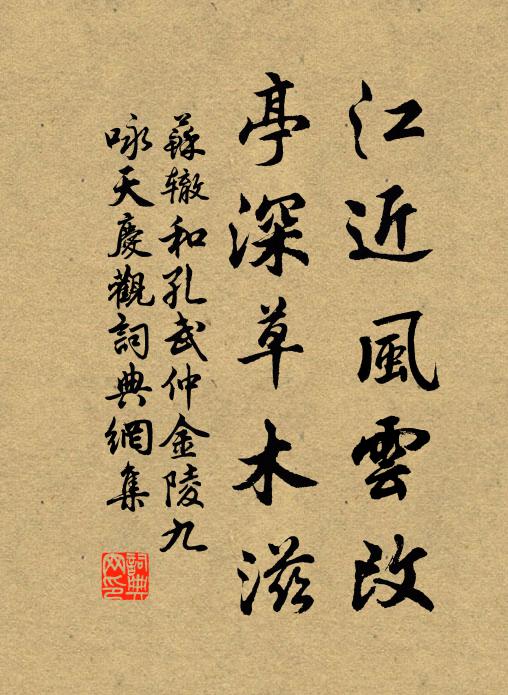 江近風雲改
亭深草木滋
蘇辙和孔武仲金陵九
咏天慶觀詞典網集
詞典網印